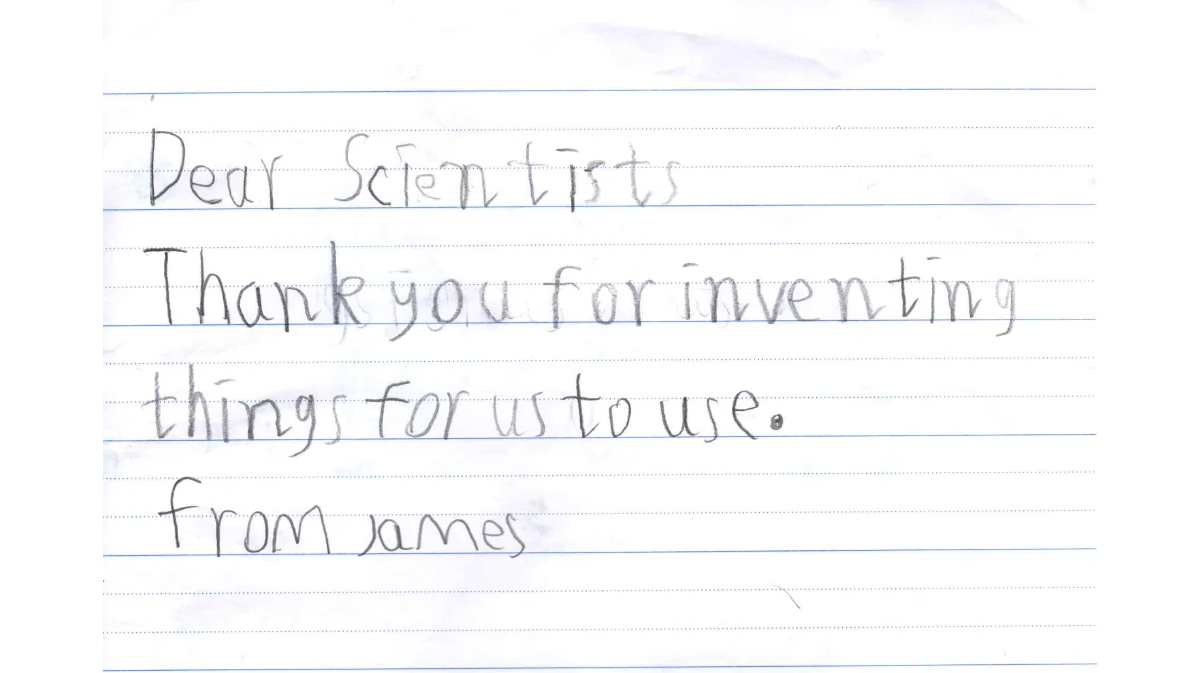 Dear Scientists
Thank you for inventing
things for us to use.
from James